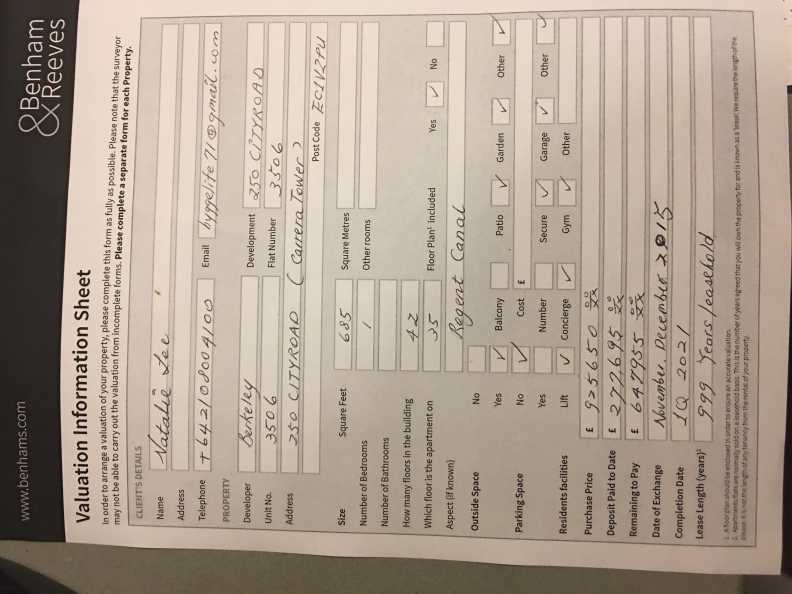 www.benhams.com
&Benham
&Reeves
Valuation Information Sheet
In order to arrange a valuation of your property, please complete this form as fully as possible. Please note that the surveyor
may not be able to carry out the valuation from incomplete forms. Please complete a separate form for each Property.
CLIENT'S DETAILS
Name Natalie Lee
Address
Telephone +642108004100 Email hyggelife71@gmail.com
PROPERTY
Developer Berkeley Development 250 CITYROAD
Unit No. 3506 Flat Number 3506
Address 250 CITYROAD (Carrera Tower)
Post Code EC1V2PU
Size Square Feet 685 Square Metres
Number of Bedrooms 1 Other rooms
Number of Bathrooms
How many floors in the building 42
Which floor is the apartment on 35 Floor Plan¹ included Yes ✓ No
Aspect (if known) Regent Canal
Outside Space No
Yes ✓ Balcony Patio ✓ Garden ✓ Other ✓
Parking Space No ✓ Cost £
Yes Number Secure ✓ Garage ✓ Other ✓
Residents facilities Lift ✓ Concierge ✓ Gym ✓ Other
Purchase Price £ 925650
Deposit Paid to Date £ 277695
Remaining to Pay £ 647955
Date of Exchange November. December 2015
Completion Date 1Q 2021
Lease Length (years)² 999 Years leasehold
1. A floor plan should be enclosed in order to ensure an accurate valuation.
2. Apartments that are normally sold on a leasehold basis. This is the number of years agreed that you will own the property for and is known as a 'lease'. We require the length of the
please it is not the length of any tenancy from the rental of your property.